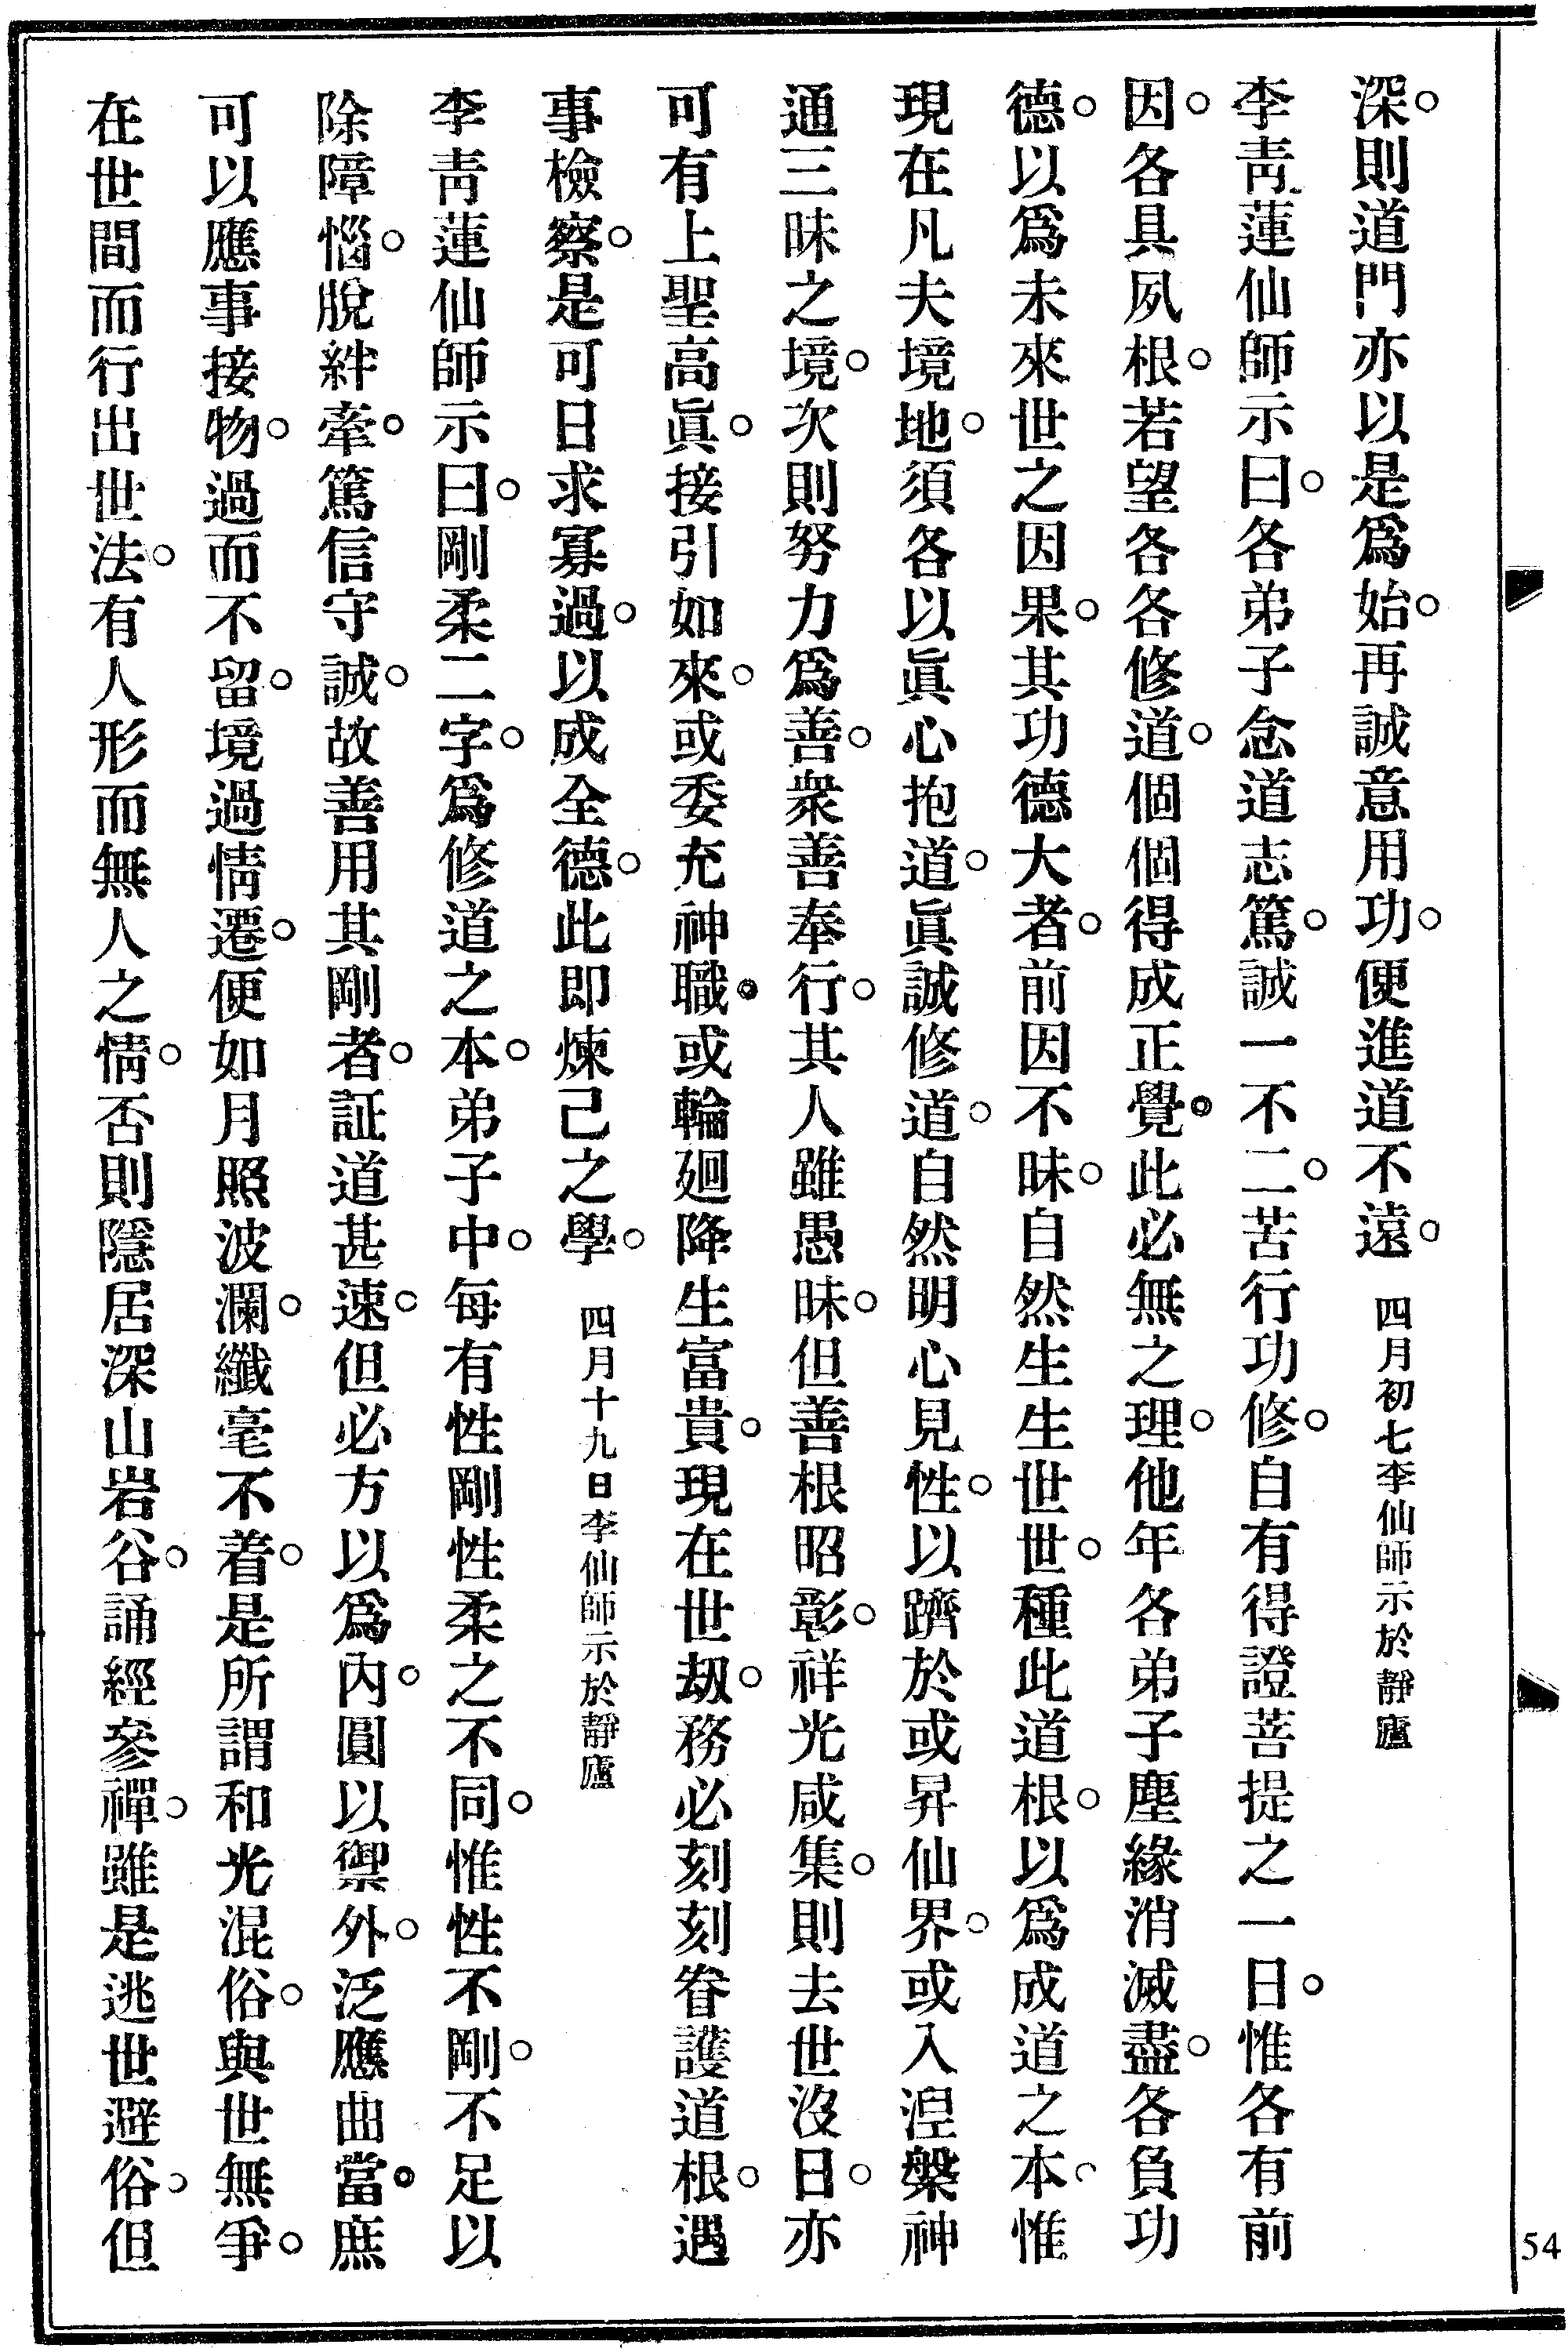 深。則道門亦以是爲始。再誠意用功。便進道不遠。 四月初七李仙師示於靜廬
李靑蓮仙師示曰。各弟子念道志篤。誠一不二。苦行功修。自有得證菩提之一日。惟各有前
因。各具夙根。若望各各修道。個個得成正覺。此必無之理。他年各弟子塵緣消滅盡。各負功
德。以爲未來世之因果。其功德大者。前因不昧。自然生生世世。種此道根。以爲成道之本。惟
現在凡夫境地。須各以眞心抱道。眞誠修道。自然明心見性。以躋於或昇仙界。或入湼槃神
通三昧之境。次則努力爲善。衆善奉行。其人雖愚昧。但善根昭彰。祥光咸集。則去世沒日。亦
可有上聖高眞。接引如來。或委充神職。或輪廻降生富貴。現在世刼。務必刻刻眷護道根。遇
事檢察。是可日求寡過。以成全德。此即煉己之學。 四月十九日李仙師示於靜廬
李靑蓮仙師示曰。剛柔二字。爲修道之本。弟子中。每有性剛性柔之不同。惟性不剛。不足以
除障惱。脫絆牽。篤信守誠。故善用其剛者。証道甚速。但必方以爲內。圓以禦外。泛應曲當。庶
可以應事接物。過而不留。境過情遷。便如月照波瀾。纖毫不着。是所謂和光混俗。與世無爭。
在世間而行出世法。有人形而無人之情。否則隱居深山岩谷。誦經參禪。雖是逃世避俗。但
54